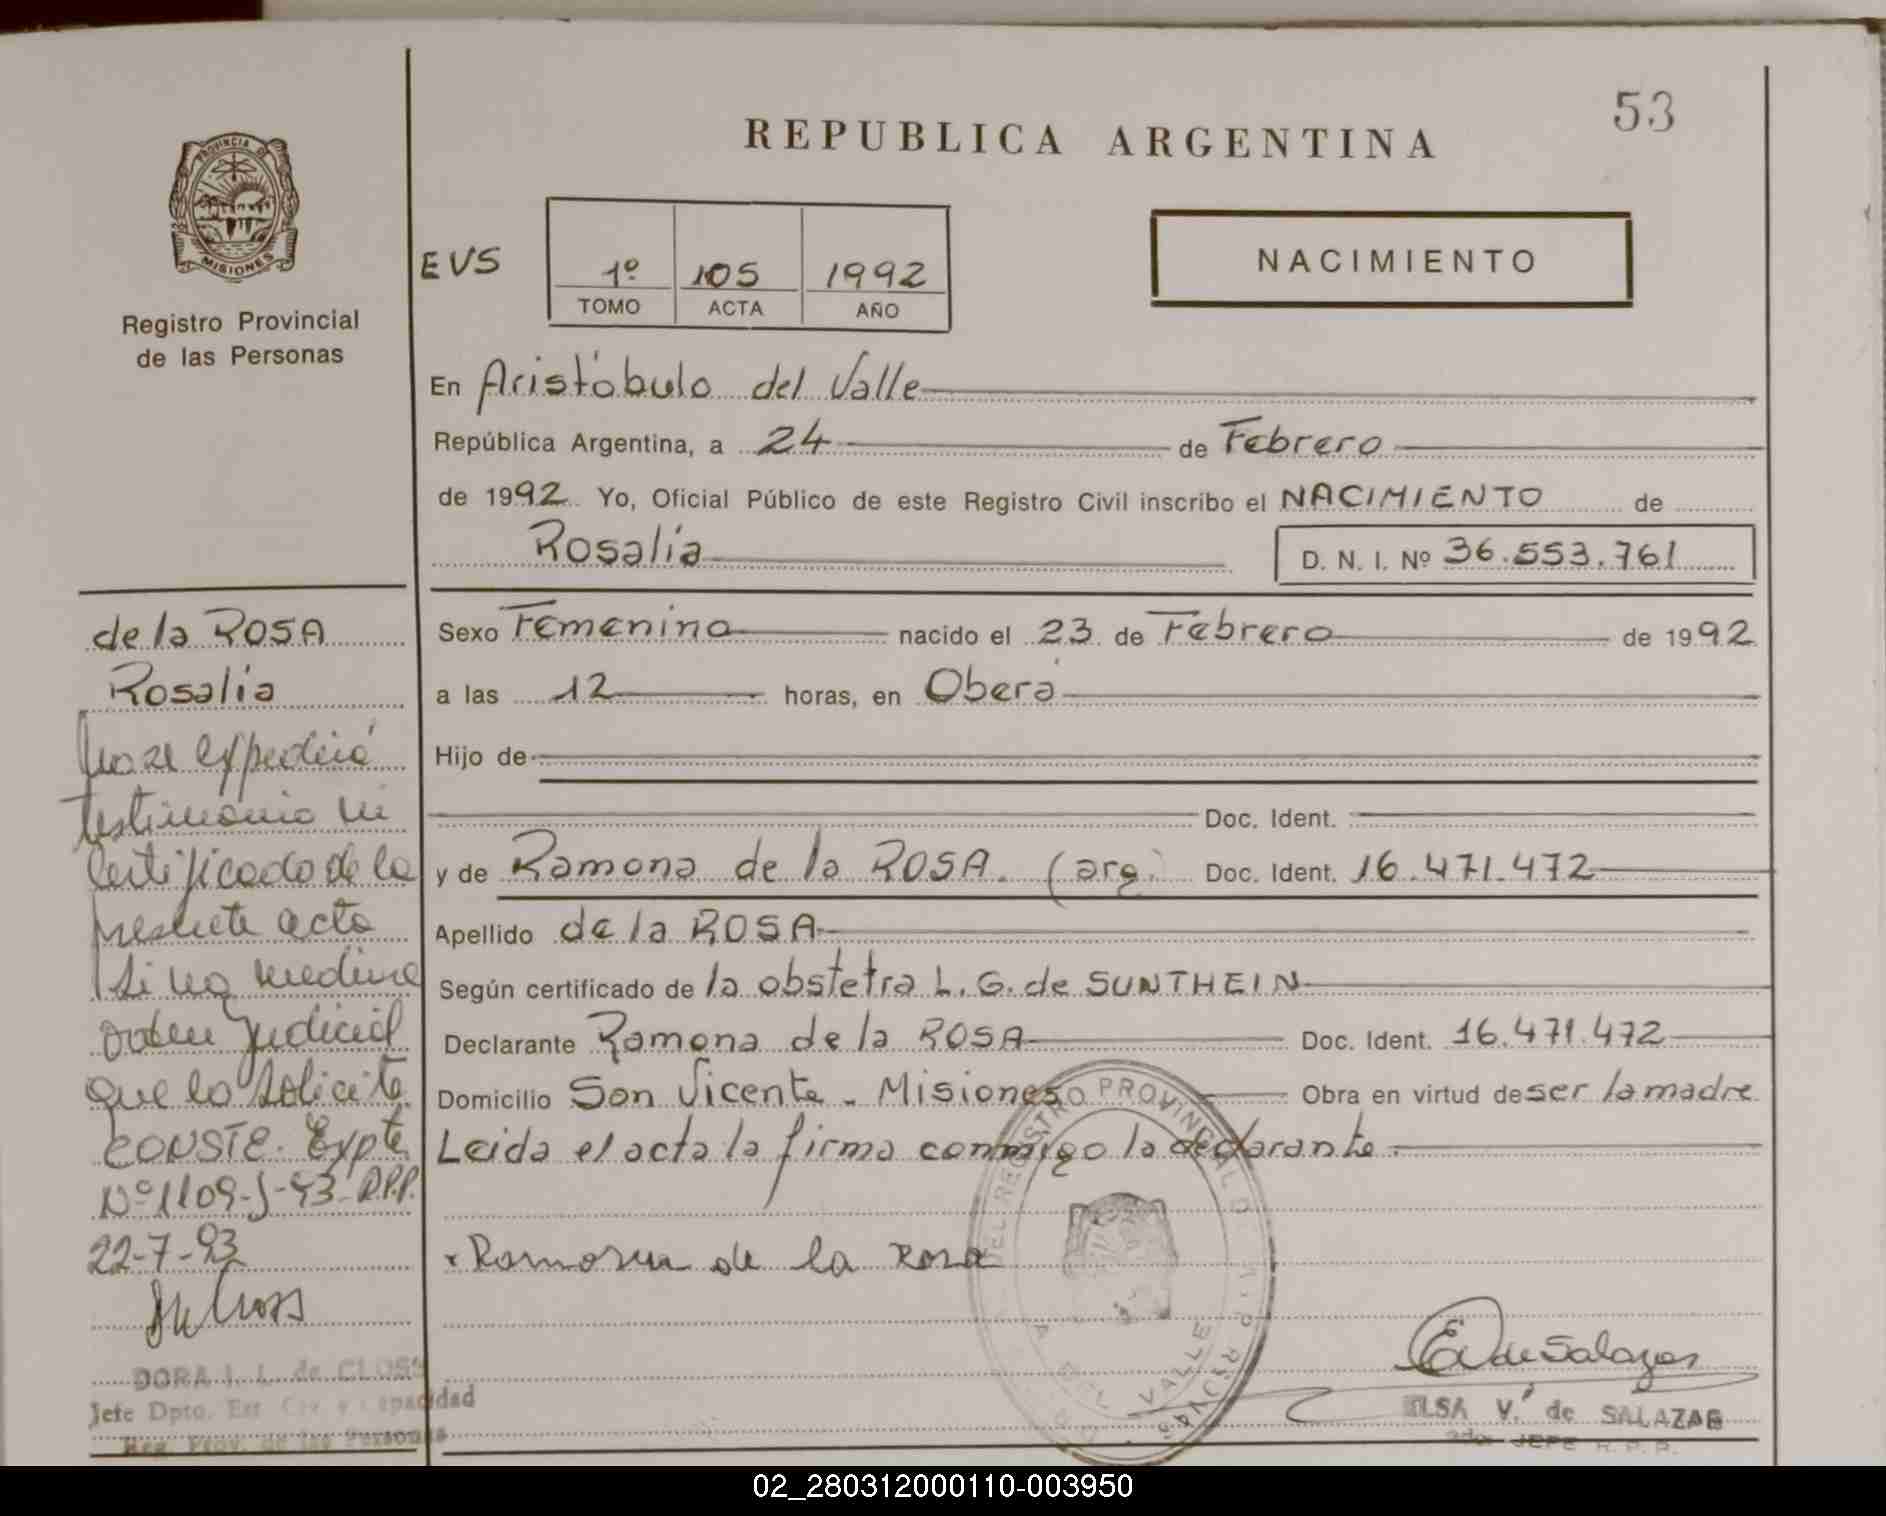 53
REPUBLICA ARGENTINA
PROVINCIA DE
MISIONES
Registro Provincial
de las Personas
EVS
1º 105 1992
TOMO ACTA AÑO
NACIMIENTO
En Aristóbulo del Valle
República Argentina, a 24 de Febrero
de 1992 Yo, Oficial Público de este Registro Civil inscribo el NACIMIENTO de
Rosalía D. N. I. Nº 36.553.761
Sexo Femenino nacido el 23 de Febrero de 1992
a las 12 horas, en Oberá
Hijo de
Doc. Ident.
y de Ramona de la ROSA. (arg.) Doc. Ident. 16.471.472
Apellido de la ROSA
Según certificado de la obstetra L. G. de SUNTHEIN
Declarante Ramona de la ROSA Doc. Ident. 16.471.472
Domicilio San Vicente - Misiones Obra en virtud de ser la madre
Leida el acta la firma conmigo la declarante
x Ramona de la Rosa
de la ROSA
Rosalía
No se expedirá
testimonio ni
certificado de la
presente acta
si no media
orden judicial
que lo solicite
CONSTE. Expte
Nº 1109-J-93-R.P.P.
22-7-93
DORA I. L. de CLOSS
Jefe Dpto. Est. Civ. y Capacidad
Reg. Prov. de las Personas
REGISTRO PROVINCIAL D
DEL VALLE
E V de Salazar
ELSA V. de SALAZAR
JEFE R. P. P.
02_280312000110-003950